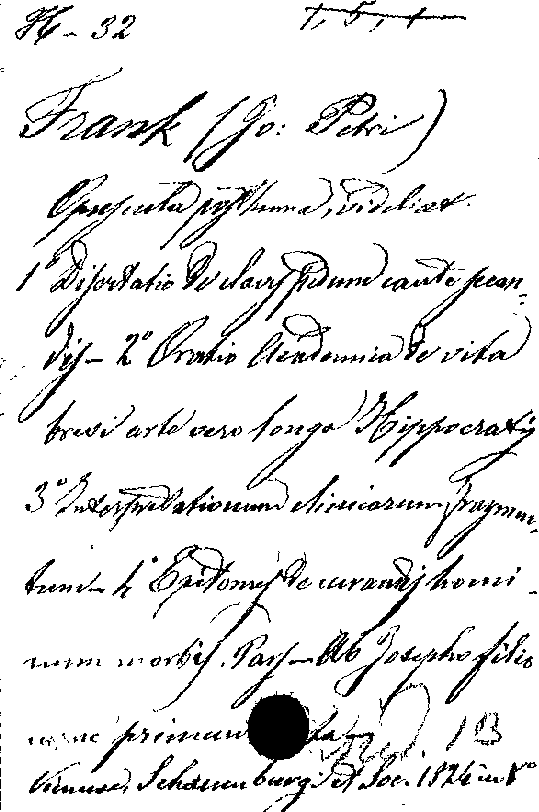 H - 32
1, 5, 1
Frank (Jo: Petri)
Opuscula posthuma, videlicet.
1° Disertatio de clavis pedum caute secan-
dis - 2° Oratio Academica de vita
brevi arte vero longa Hippocratis
3° Interpretationum clinicarum fragmen-
tum - 4° Epitomes de curandis homi-
num morbis. Pars - Ab Josepho filio
nunc primum 1 B
Viennae, Schaumburg et Soc. 1824 in 8°